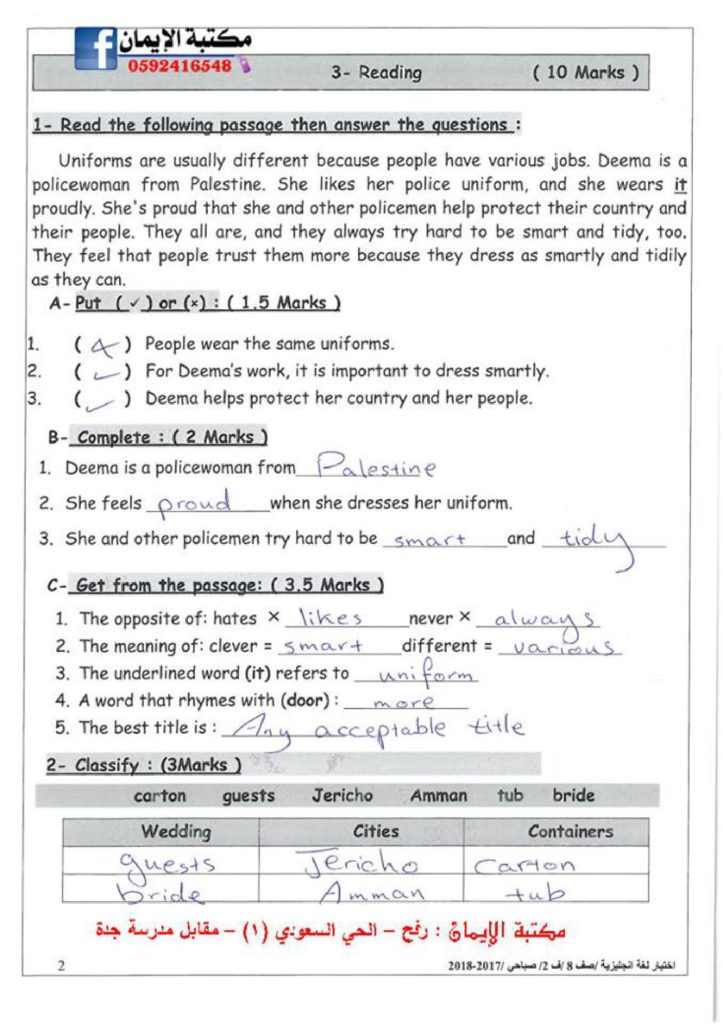 مكتبة الإيمان
0592416548
3- Reading ( 10 Marks )
1- Read the following passage then answer the questions :
Uniforms are usually different because people have various jobs. Deema is a
policewoman from Palestine. She likes her police uniform, and she wears it
proudly. She's proud that she and other policemen help protect their country and
their people. They all are, and they always try hard to be smart and tidy, too.
They feel that people trust them more because they dress as smartly and tidily
as they can.
A- Put (✓) or (×) : ( 1.5 Marks )
1. ( × ) People wear the same uniforms.
2. ( ✓ ) For Deema's work, it is important to dress smartly.
3. ( ✓ ) Deema helps protect her country and her people.
B- Complete : ( 2 Marks )
1. Deema is a policewoman from Palestine
2. She feels proud when she dresses her uniform.
3. She and other policemen try hard to be smart and tidy
C- Get from the passage: ( 3.5 Marks )
1. The opposite of: hates × likes never × always
2. The meaning of: clever = smart different = various
3. The underlined word (it) refers to uniform
4. A word that rhymes with (door) : more
5. The best title is : Any acceptable title
2- Classify : (3Marks )
carton guests Jericho Amman tub bride
Wedding Cities Containers
guests Jericho carton
bride Amman tub
مكتبة الإيمان : رفح – الحي السعودي (١) – مقابل مدرسة جدة
2 اختبار لغة انجليزية /صف 8 /ف 2/ صباحي /2017-2018